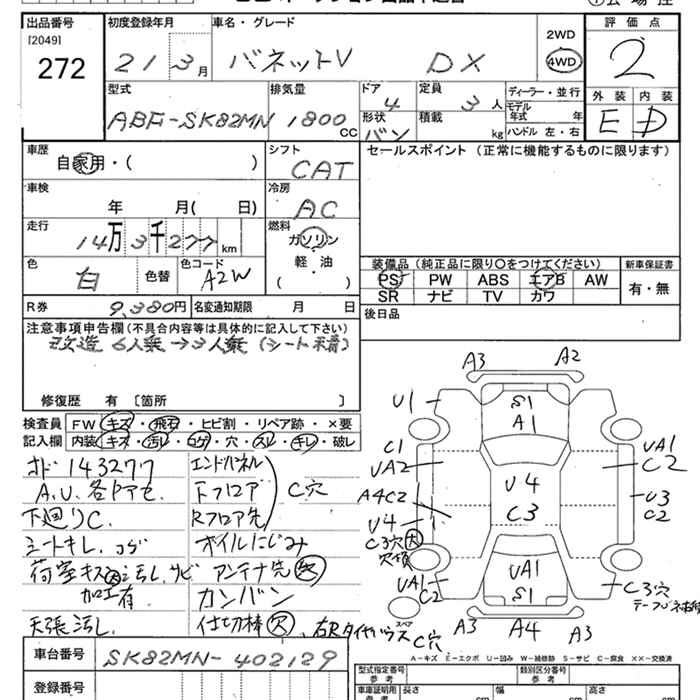 出品番号
[2049]
272
初度登録年月
21 3月
車名・グレード
バネットV DX
2WD
4WD
評価点
2
外装 内装
E D
型式
ABF-SK82MN
排気量
1800cc
ドア
4
形状
バン
定員
3人
積載
kg
ディーラー・並行
モデル年式 年
ハンドル 左・右
車歴
自家用・( )
シフト
CAT
セールスポイント (正常に機能するものに限ります)
車検
年 月( 日)
冷房
AC
走行
14万3千277km
燃料
ガソリン
軽・油
( )
色
白
色替
色コード
A2W
装備品 (純正品に限り○をつけてください)
PS PW ABS エアB AW
SR ナビ TV カワ
新車保証書
有・無
R券
9,380円
名変通知期限 月 日
後日品
注意事項申告欄(不具合内容等は具体的に記入して下さい)
改造 6人乗→3人乗 (シート不着)
修復歴 有 [箇所 ]
検査員記入欄
FW キズ・飛石・ヒビ割・リペア跡・×要
内装 キズ・汚レ・コゲ・穴・スレ・キレ・破レ
143277
A.U.各Pアセ.
下廻りC.
シートキレ.コゲ
荷室キズ大汚レ.サビ
加工有
天張汚レ.
エンドパネル
下フロア
Rフロア先
C穴
オイルにじみ
アンテナ先欠
カンバン
仕切棒欠
右Rタイヤハウス C穴
A3 A2
U1
S1
A1
C1
UA2
A4C2
U4
C3穴大
U4
C3
UA1
C2
U3
C2
UA1
C2
UA1
S1
C3穴
スペア
A3 A4 A3
A-キズ E-エクボ U-凹み W-補修跡 S-サビ C-腐食 ××-交換済
車台番号
SK82MN-402129
登録番号
型式指定番号
参考
類別区分番号
参考
車庫証明用
参考
長さ
cm
幅
cm
高さ
cm